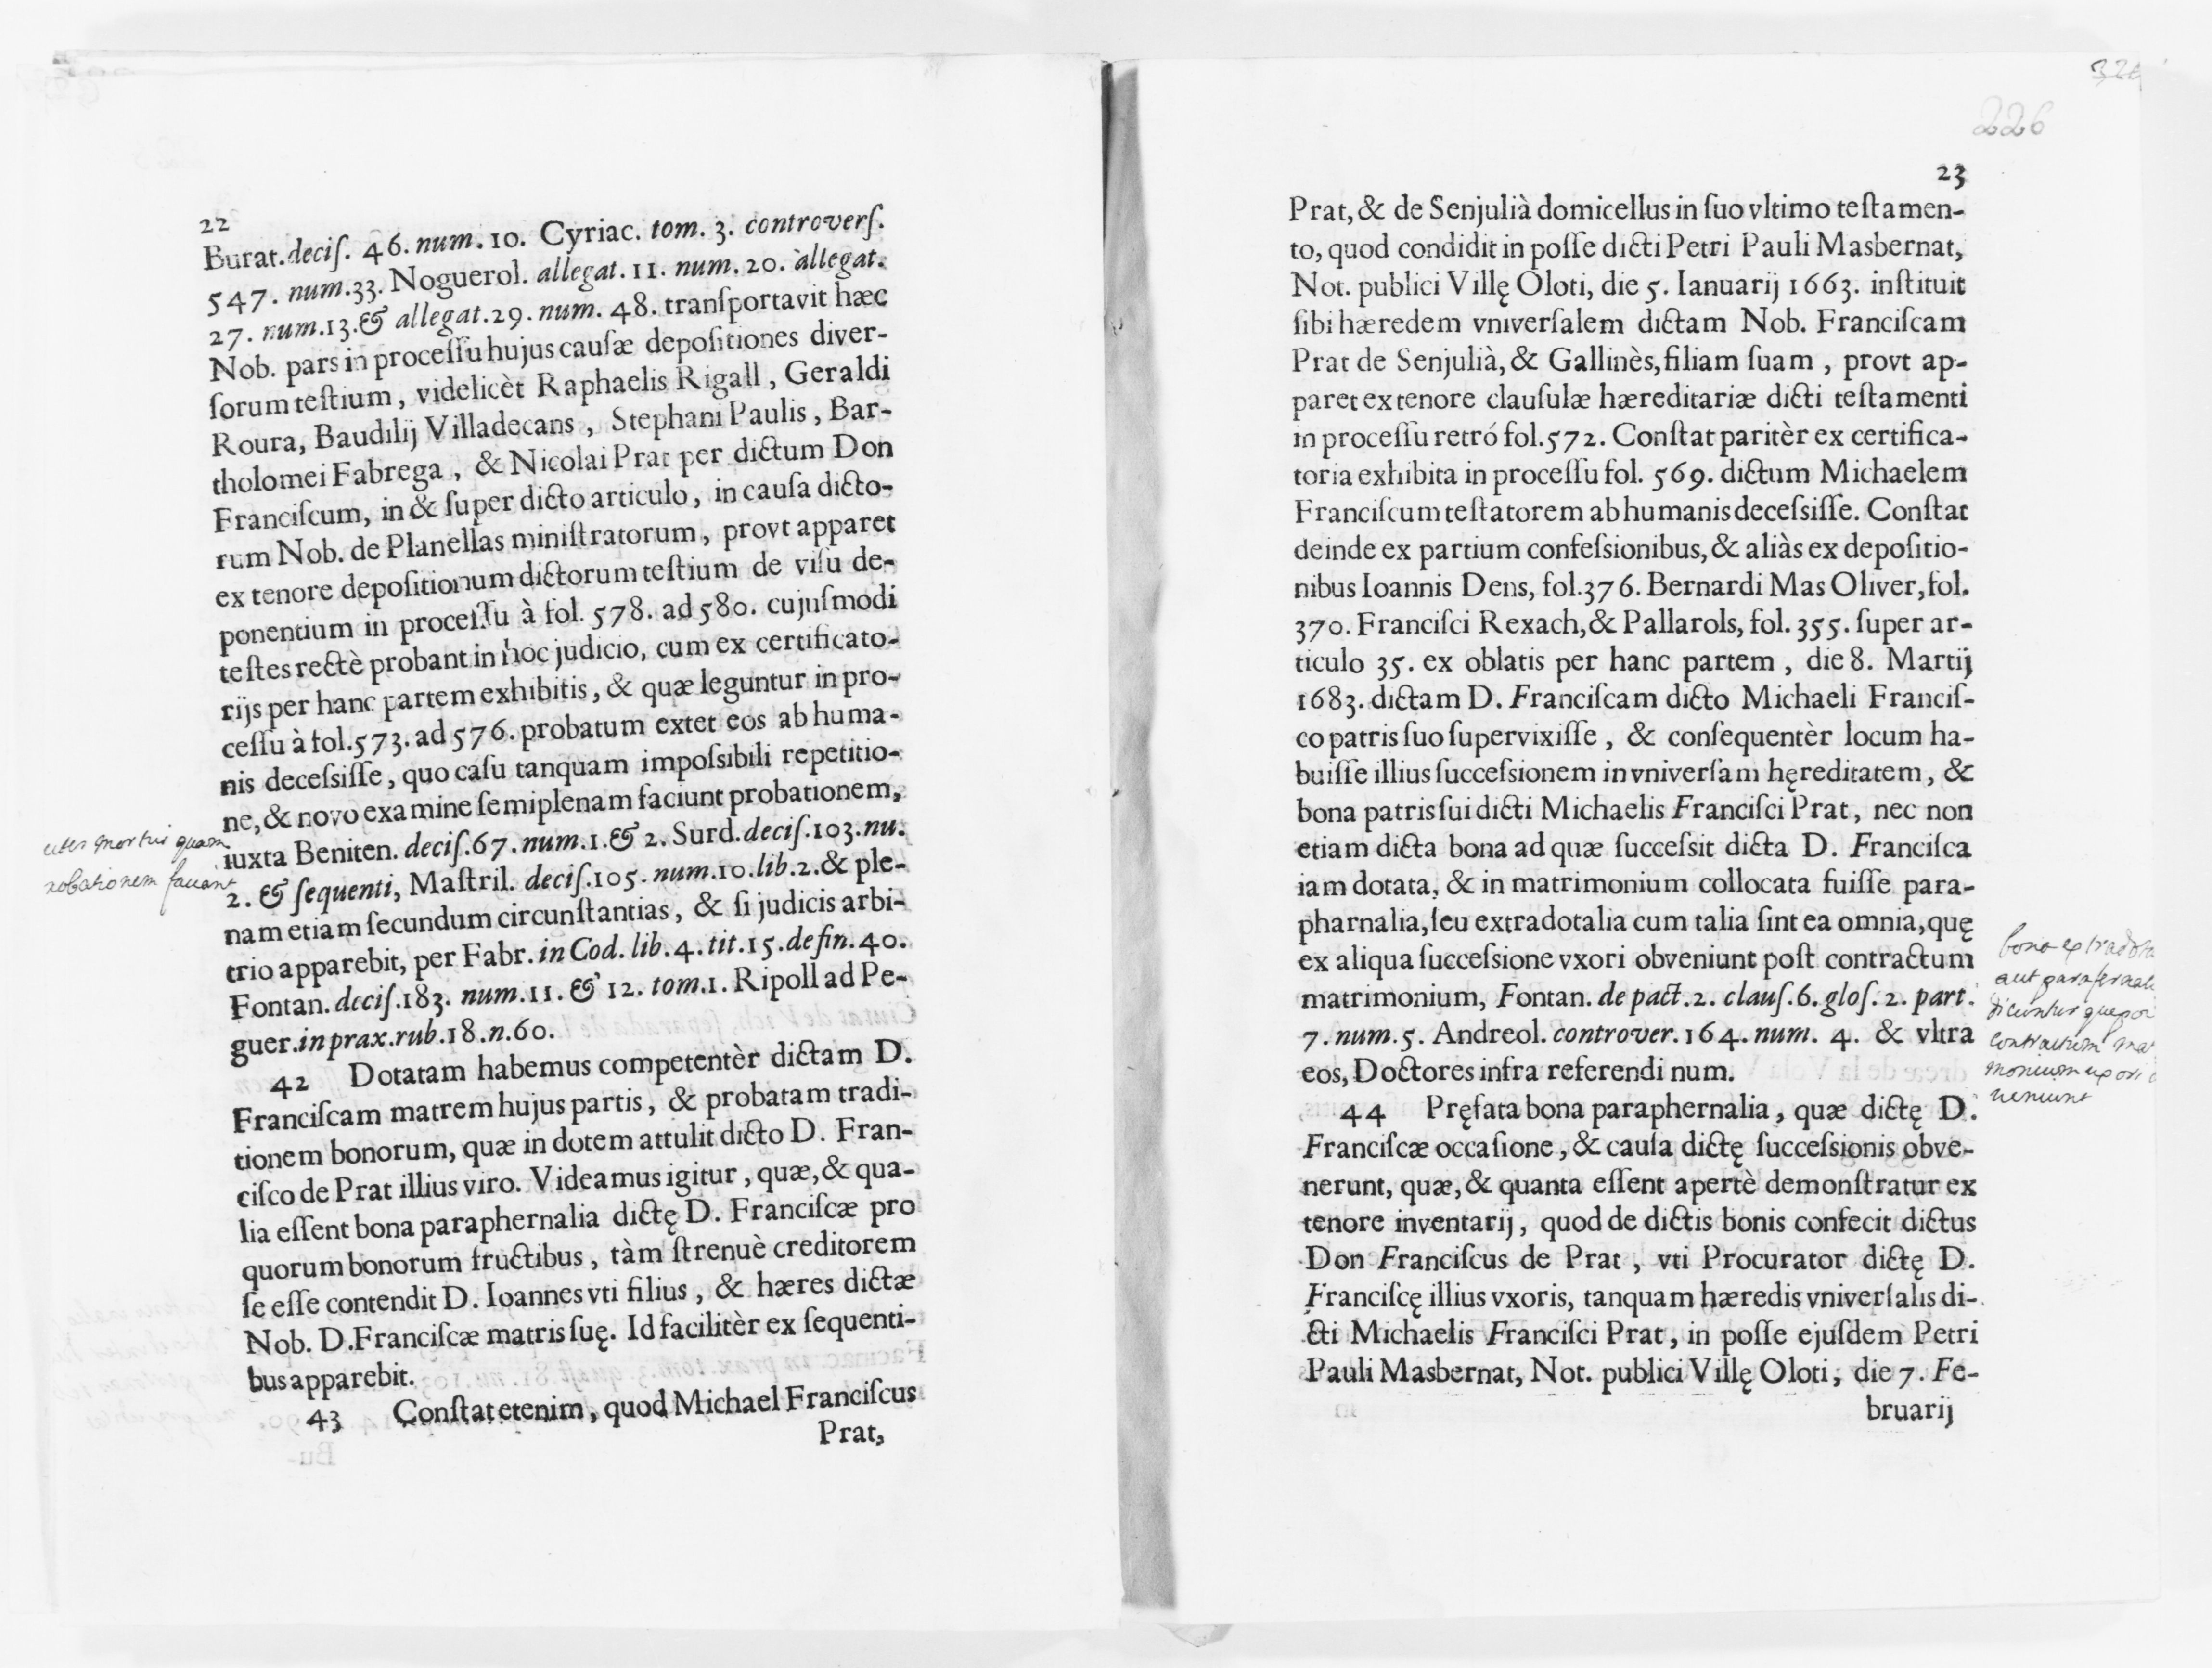 22
Burat. deciſ. 46. num. 10. Cyriac. tom. 3. controverſ.
547. num. 33. Noguerol. allegat. 11. num. 20. allegat.
27. num. 13. & allegat. 29. num. 48. tranſportavit hæc
Nob. pars in proceſſu hujus cauſæ depoſitiones diver-
ſorum teſtium, videlicèt Raphaelis Rigall, Geraldi
Roura, Baudilij Villadecans, Stephani Paulis, Bar-
tholomei Fabrega, & Nicolai Prat per dictum Don
Franciſcum, in & ſuper dicto articulo, in cauſa dicto-
rum Nob. de Planellas miniſtratorum, provt apparet
ex tenore depoſitionum dictorum teſtium de viſu de-
ponentium in proceſſu à fol. 578. ad 580. cujuſmodi
teſtes rectè probant in hoc judicio, cum ex certificato-
rijs per hanc partem exhibitis, & quæ leguntur in pro-
ceſſu à fol. 573. ad 576. probatum extet eos ab huma-
nis deceſsiſſe, quo caſu tanquam impoſsibili repetitio-
ne, & novo examine ſemiplenam faciunt probationem,
iuxta Beniten. deciſ. 67. num. 1. & 2. Surd. deciſ. 103. nu.
2. & ſequenti, Maſtril. deciſ. 105. num. 10. lib. 2. & ple-
nam etiam ſecundum circunſtantias, & ſi judicis arbi-
trio apparebit, per Fabr. in Cod. lib. 4. tit. 15. defin. 40.
Fontan. deciſ. 183. num. 11. & 12. tom. 1. Ripoll ad Pe-
guer. in prax. rub. 18. n. 60.
42 Dotatam habemus competentèr dictam D.
Franciſcam matrem hujus partis, & probatam tradi-
tionem bonorum, quæ in dotem attulit dicto D. Fran-
ciſco de Prat illius viro. Videamus igitur, quæ, & qua-
lia eſſent bona paraphernalia dictę D. Franciſcæ pro
quorum bonorum fructibus, tàm ſtrenuè creditorem
ſe eſſe contendit D. Ioannes vti filius, & hæres dictæ
Nob. D. Franciſcæ matris ſuę. Id facilitèr ex ſequenti-
bus apparebit.
43 Conſtat etenim, quod Michael Franciſcus
Prat,
mortui quam
faciant
226
23
Prat, & de Senjulià domicellus in ſuo vltimo teſtamen-
to, quod condidit in poſſe dicti Petri Pauli Masbernat,
Not. publici Villę Oloti, die 5. Ianuarij 1663. inſtituit
ſibi hæredem vniverſalem dictam Nob. Franciſcam
Prat de Senjulià, & Gallinès, filiam ſuam, provt ap-
paret ex tenore clauſulæ hæreditariæ dicti teſtamenti
in proceſſu retró fol. 572. Conſtat paritèr ex certifica-
toria exhibita in proceſſu fol. 569. dictum Michaelem
Franciſcum teſtatorem ab humanis deceſsiſſe. Conſtat
deinde ex partium confeſsionibus, & aliàs ex depoſitio-
nibus Ioannis Dens, fol. 376. Bernardi Mas Oliver, fol.
370. Franciſci Rexach, & Pallarols, fol. 355. ſuper ar-
ticulo 35. ex oblatis per hanc partem, die 8. Martij
1683. dictam D. Franciſcam dicto Michaeli Franciſ-
co patris ſuo ſupervixiſſe, & conſequentèr locum ha-
buiſſe illius ſucceſsionem in vniverſam hęreditatem, &
bona patris ſui dicti Michaelis Franciſci Prat, nec non
etiam dicta bona ad quæ ſucceſsit dicta D. Franciſca
iam dotata, & in matrimonium collocata fuiſſe para-
pharnalia, ſeu extradotalia cum talia ſint ea omnia, quę
ex aliqua ſucceſsione vxori obveniunt poſt contractum
matrimonium, Fontan. de pact. 2. clauſ. 6. gloſ. 2. part.
7. num. 5. Andreol. controver. 164. num. 4. & vltra
eos, Doctores infra referendi num.
44 Pręfata bona paraphernalia, quæ dictę D.
Franciſcæ occaſione, & cauſa dictę ſucceſsionis obve-
nerunt, quæ, & quanta eſſent apertè demonſtratur ex
tenore inventarij, quod de dictis bonis confecit dictus
Don Franciſcus de Prat, vti Procurator dictę D.
Franciſcę illius vxoris, tanquam hæredis vniverſalis di-
cti Michaelis Franciſci Prat, in poſſe ejuſdem Petri
Pauli Masbernat, Not. publici Villę Oloti, die 7. Fe-
bruarij
bona
aut
dicuntur
contractum
veniunt